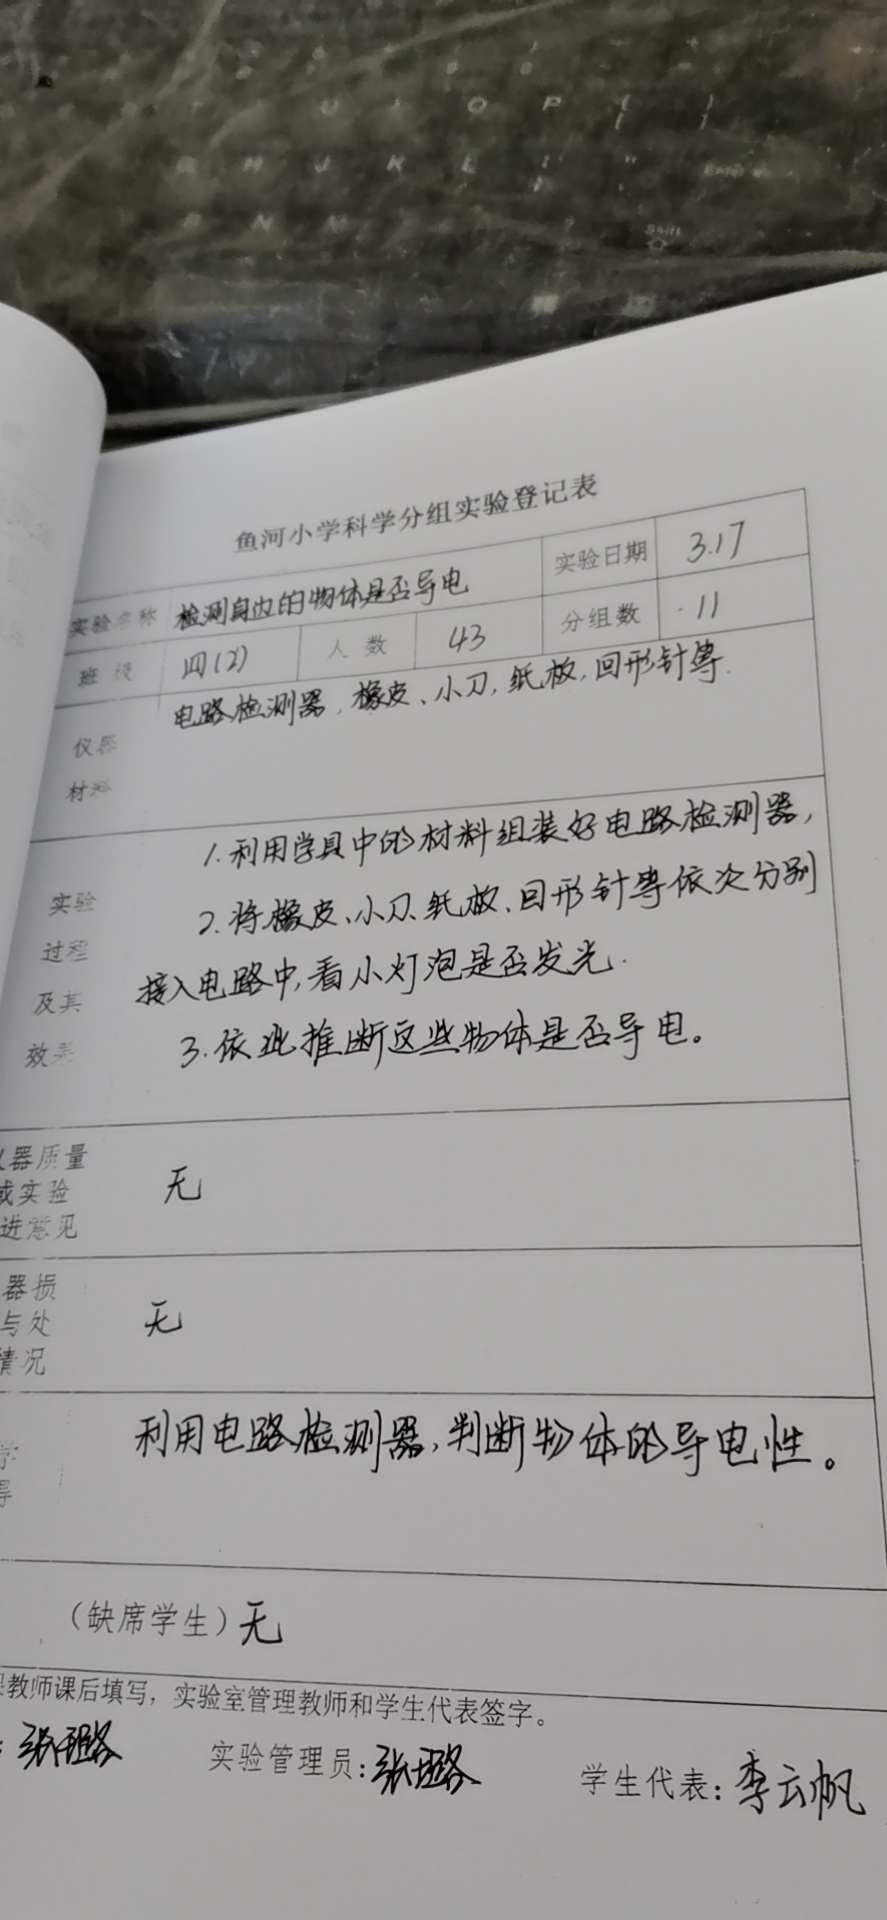 U I O P { [ } ]
H J K L : ; "
B N M
Shift
鱼河小学科学分组实验登记表
实验名称 检测身边的物体是否导电 实验日期 3.17
班级 四(2) 人数 43 分组数 11
仪器材料 电路检测器,橡皮、小刀,纸板,回形针等.
实验
过程
及其
效果
1.利用学具中的材料组装好电路检测器,
2.将橡皮、小刀、纸板、回形针等依次分别
接入电路中,看小灯泡是否发光.
3.依此推断这些物体是否导电。
器质量
或实验
进意见
无
器损
与处
情况
无
学
得
利用电路检测器,判断物体的导电性。
(缺席学生)无
教师课后填写,实验室管理教师和学生代表签字。
实验管理员: 学生代表:李云帆